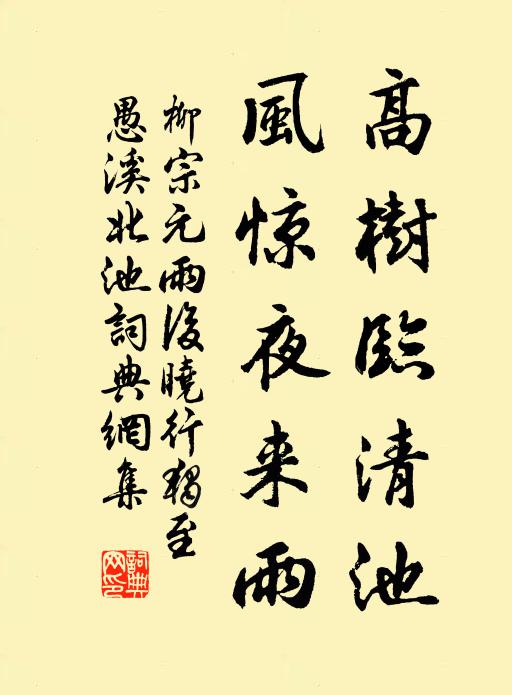 高樹臨清池
風惊夜来雨
柳宗元雨後曉行獨至
愚溪北池詞典網集
詞典
网印